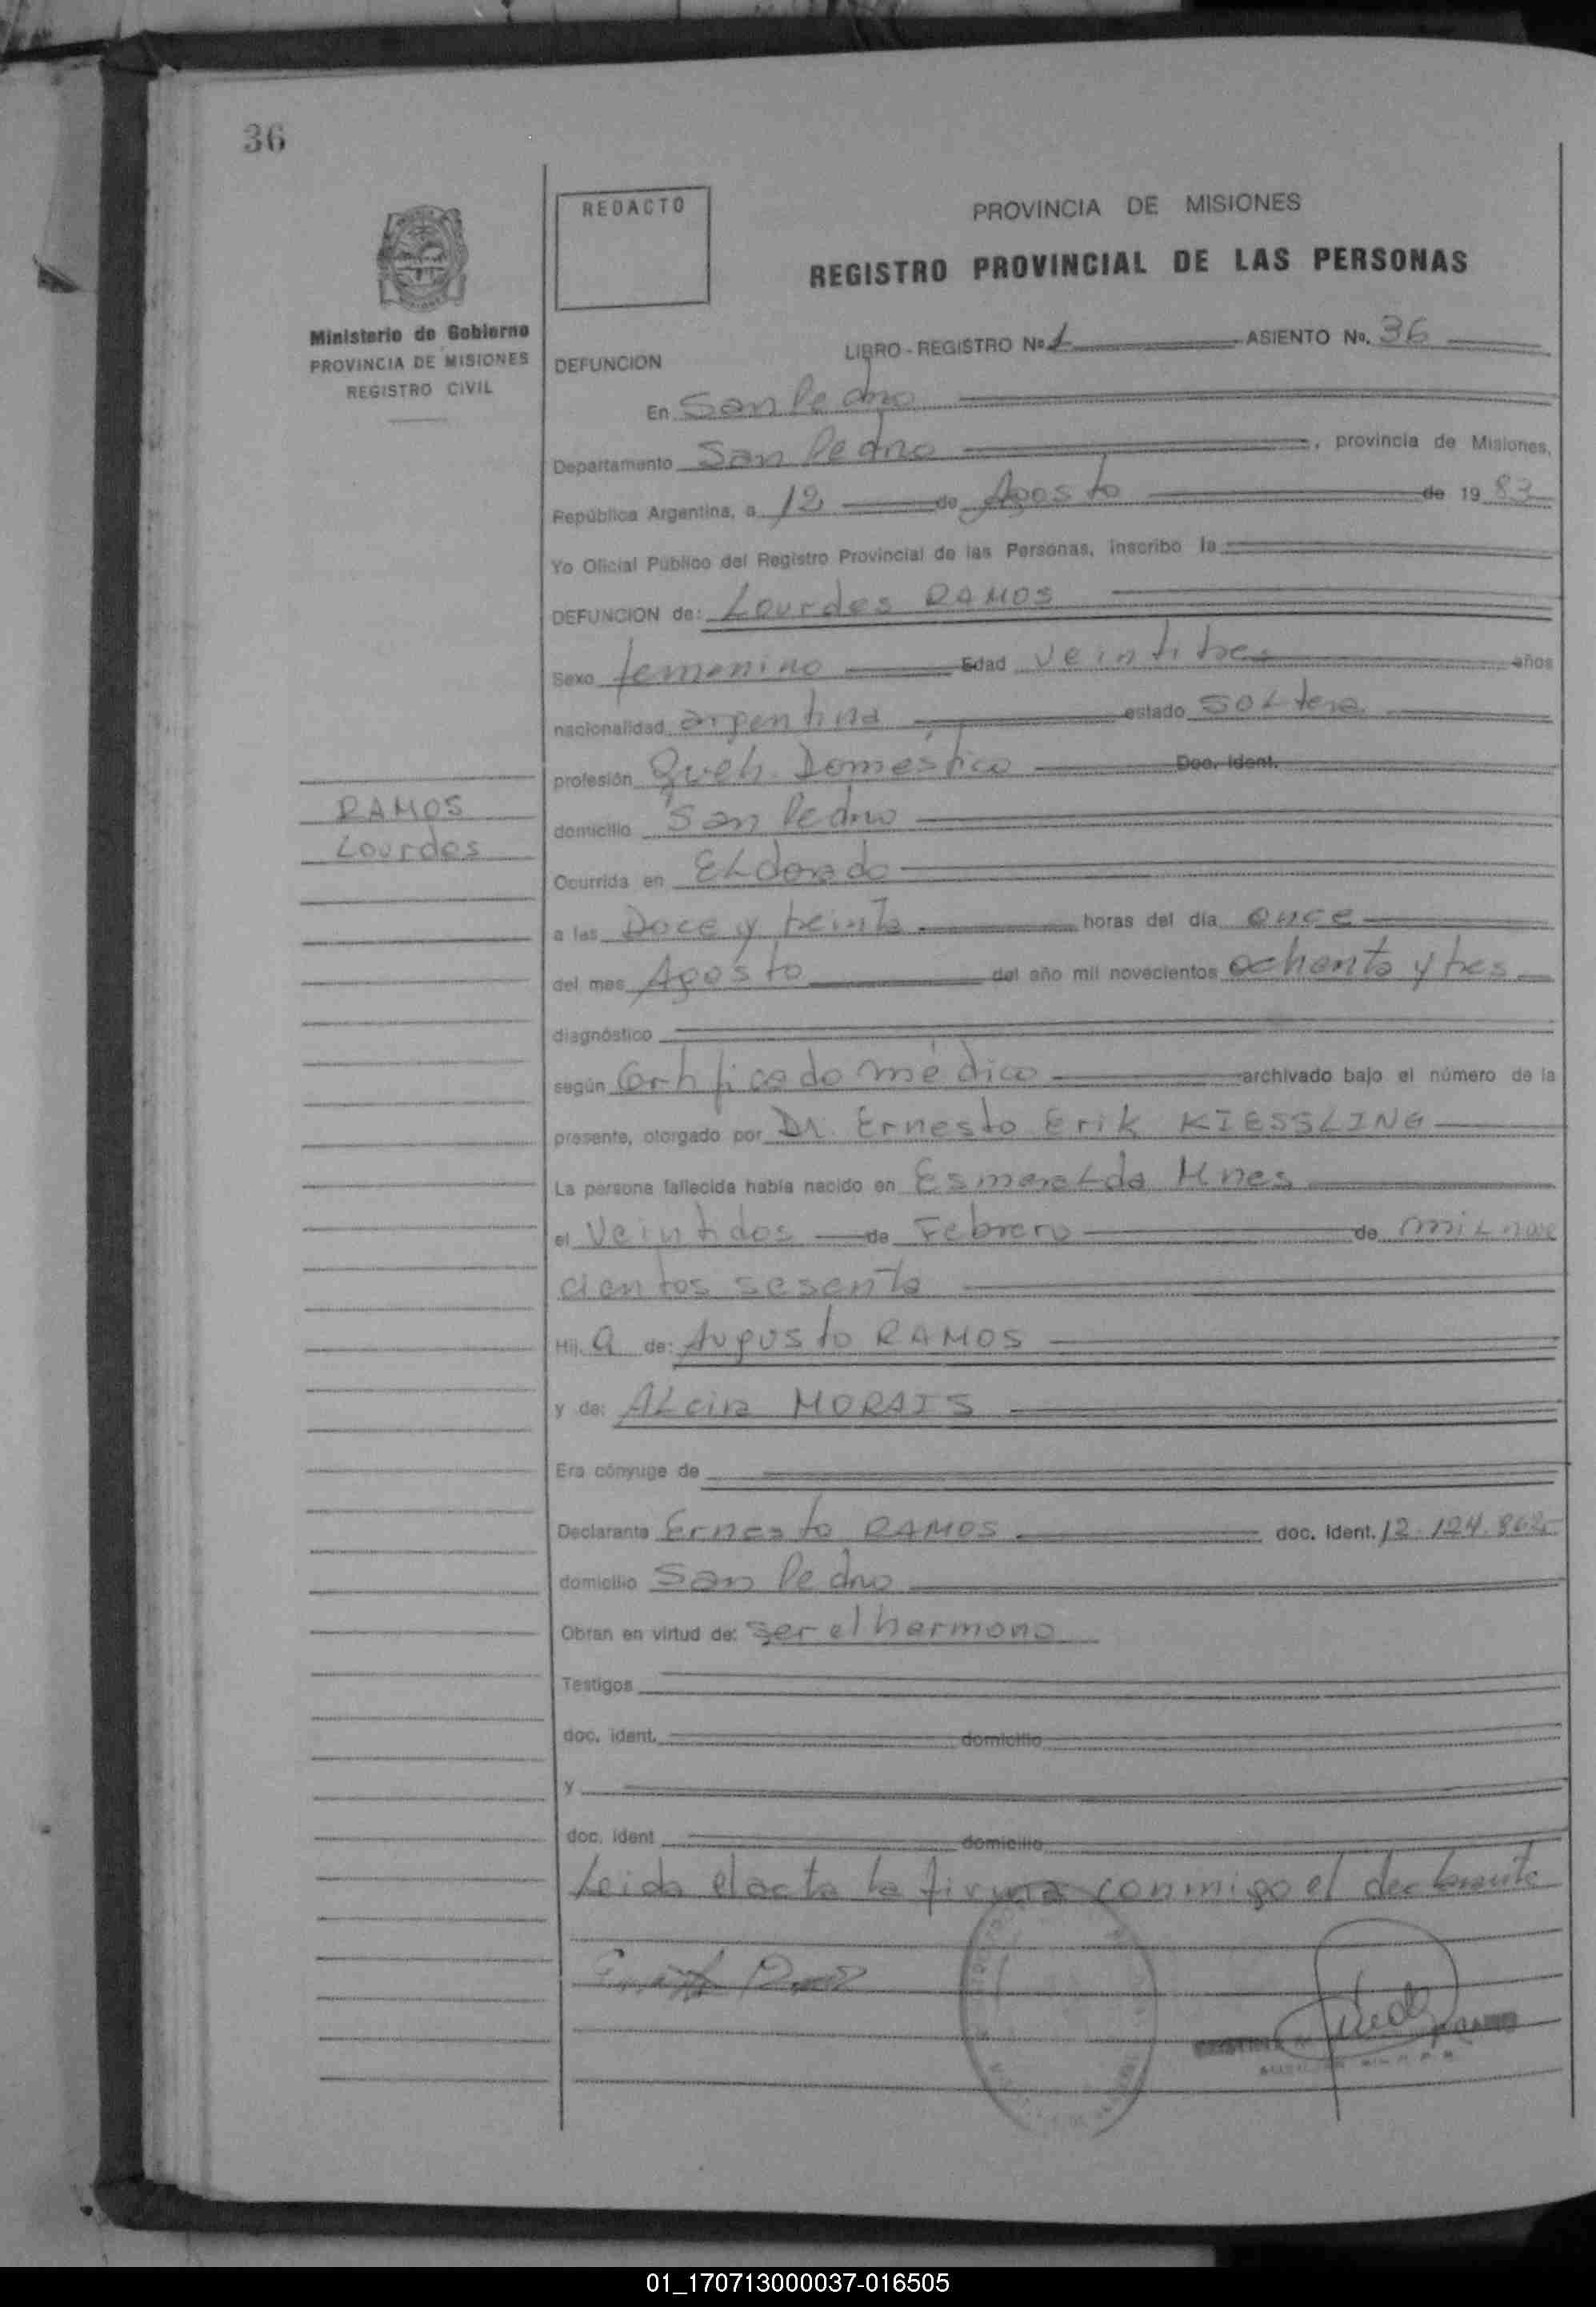 36
REDACTO
PROVINCIA DE MISIONES
REGISTRO PROVINCIAL DE LAS PERSONAS
Ministerio de Gobierno
PROVINCIA DE MISIONES
REGISTRO CIVIL
LIBRO - REGISTRO Nº 1 ASIENTO No. 36
DEFUNCION
En San Pedro
Departamento San Pedro , provincia de Misiones,
República Argentina, a 12 de Agosto de 19 83
Yo Oficial Público del Registro Provincial de las Personas, inscribo la
DEFUNCION de: Lourdes RAMOS
Sexo femenino Edad veintitres años
nacionalidad argentina estado soltera
profesión Queh. Doméstico Doc. Ident.
RAMOS
Lourdes
domicilio San Pedro
Ocurrida en Eldorado
a las Doce y treinta horas del día once
del mes Agosto del año mil novecientos ochenta y tres
diagnóstico
según Certificado médico archivado bajo el número de la
presente, otorgado por Dr. Ernesto Erik KIESSLING
La persona fallecida había nacido en Esmeralda Mnes
el Veintidos de Febrero de mil nove
cientos sesenta
Hij a de: Augusto RAMOS
y de: Alcira MORAIS
Era cónyuge de
Declarante Ernesto RAMOS doc. Ident. 12.124.862
domicilio San Pedro
Obran en virtud de: ser el hermano
Testigos
doc. ident. domicilio
y
doc. ident domicilio
Leida el acta la firma conmigo el declarante
01_170713000037-016505